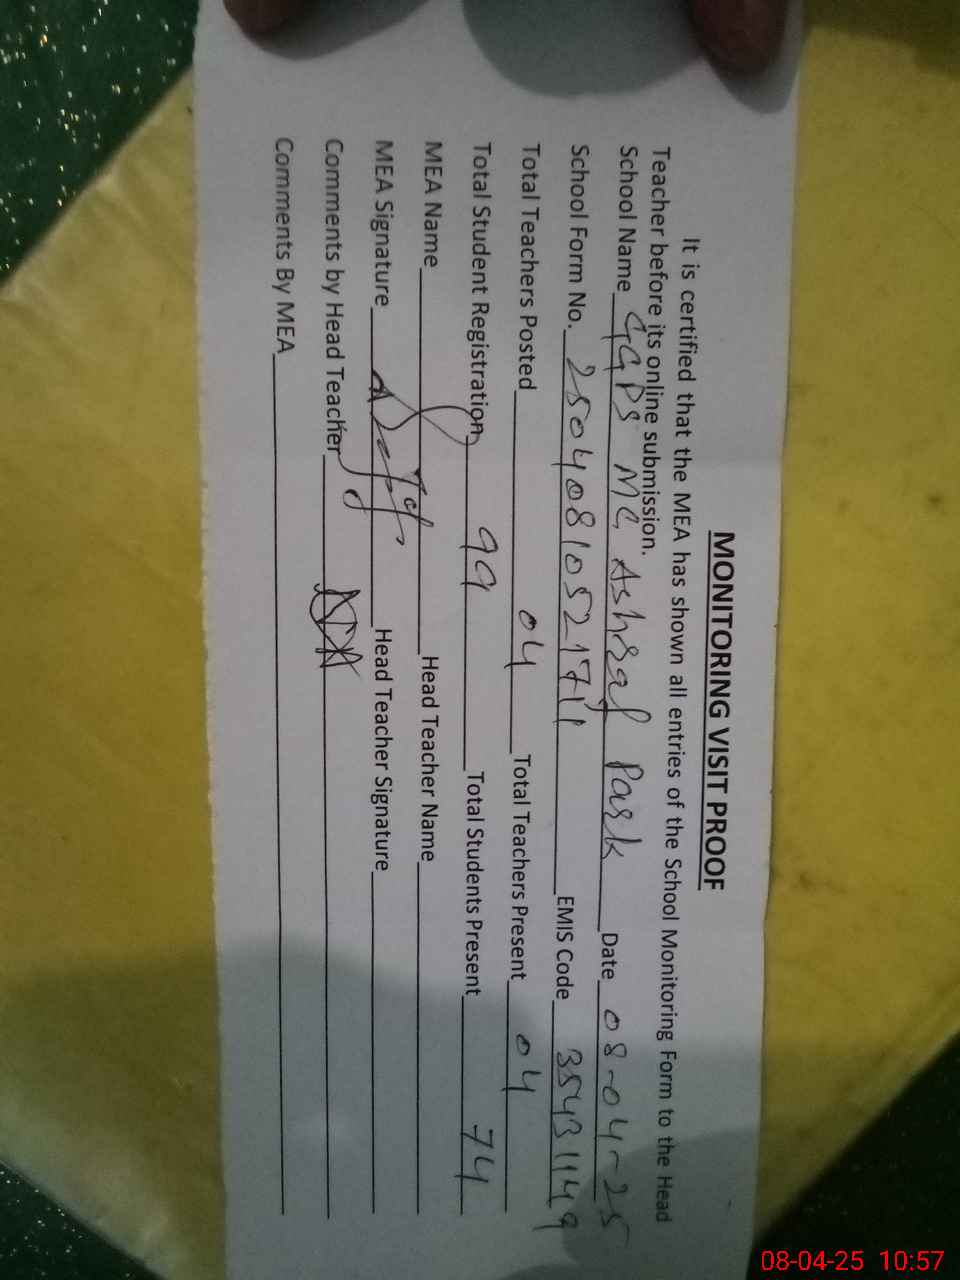 MONITORING VISIT PROOF
It is certified that the MEA has shown all entries of the School Monitoring Form to the Head
Teacher before its online submission.
School Name GGPS MC Ashraf Park Date 08-04-25
School Form No. 25040810521711 EMIS Code 35431149
Total Teachers Posted 04 Total Teachers Present 04
Total Student Registration 99 Total Students Present 74
MEA Name Head Teacher Name
MEA Signature Head Teacher Signature
Comments by Head Teacher
Comments By MEA
08-04-25 10:57